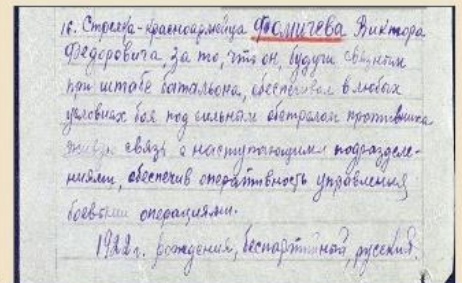 16. Стрелка-красноармейца Фомичева Виктора
Федоровича за то, что он, будучи связным
при штабе батальона, обеспечивал в любых
условиях боя под сильным обстрелом противника
живую связь с наступающими подразделе-
ниями, обеспечив оперативность управления
боевыми операциями.
1922 г. рождения, беспартийный, русский.